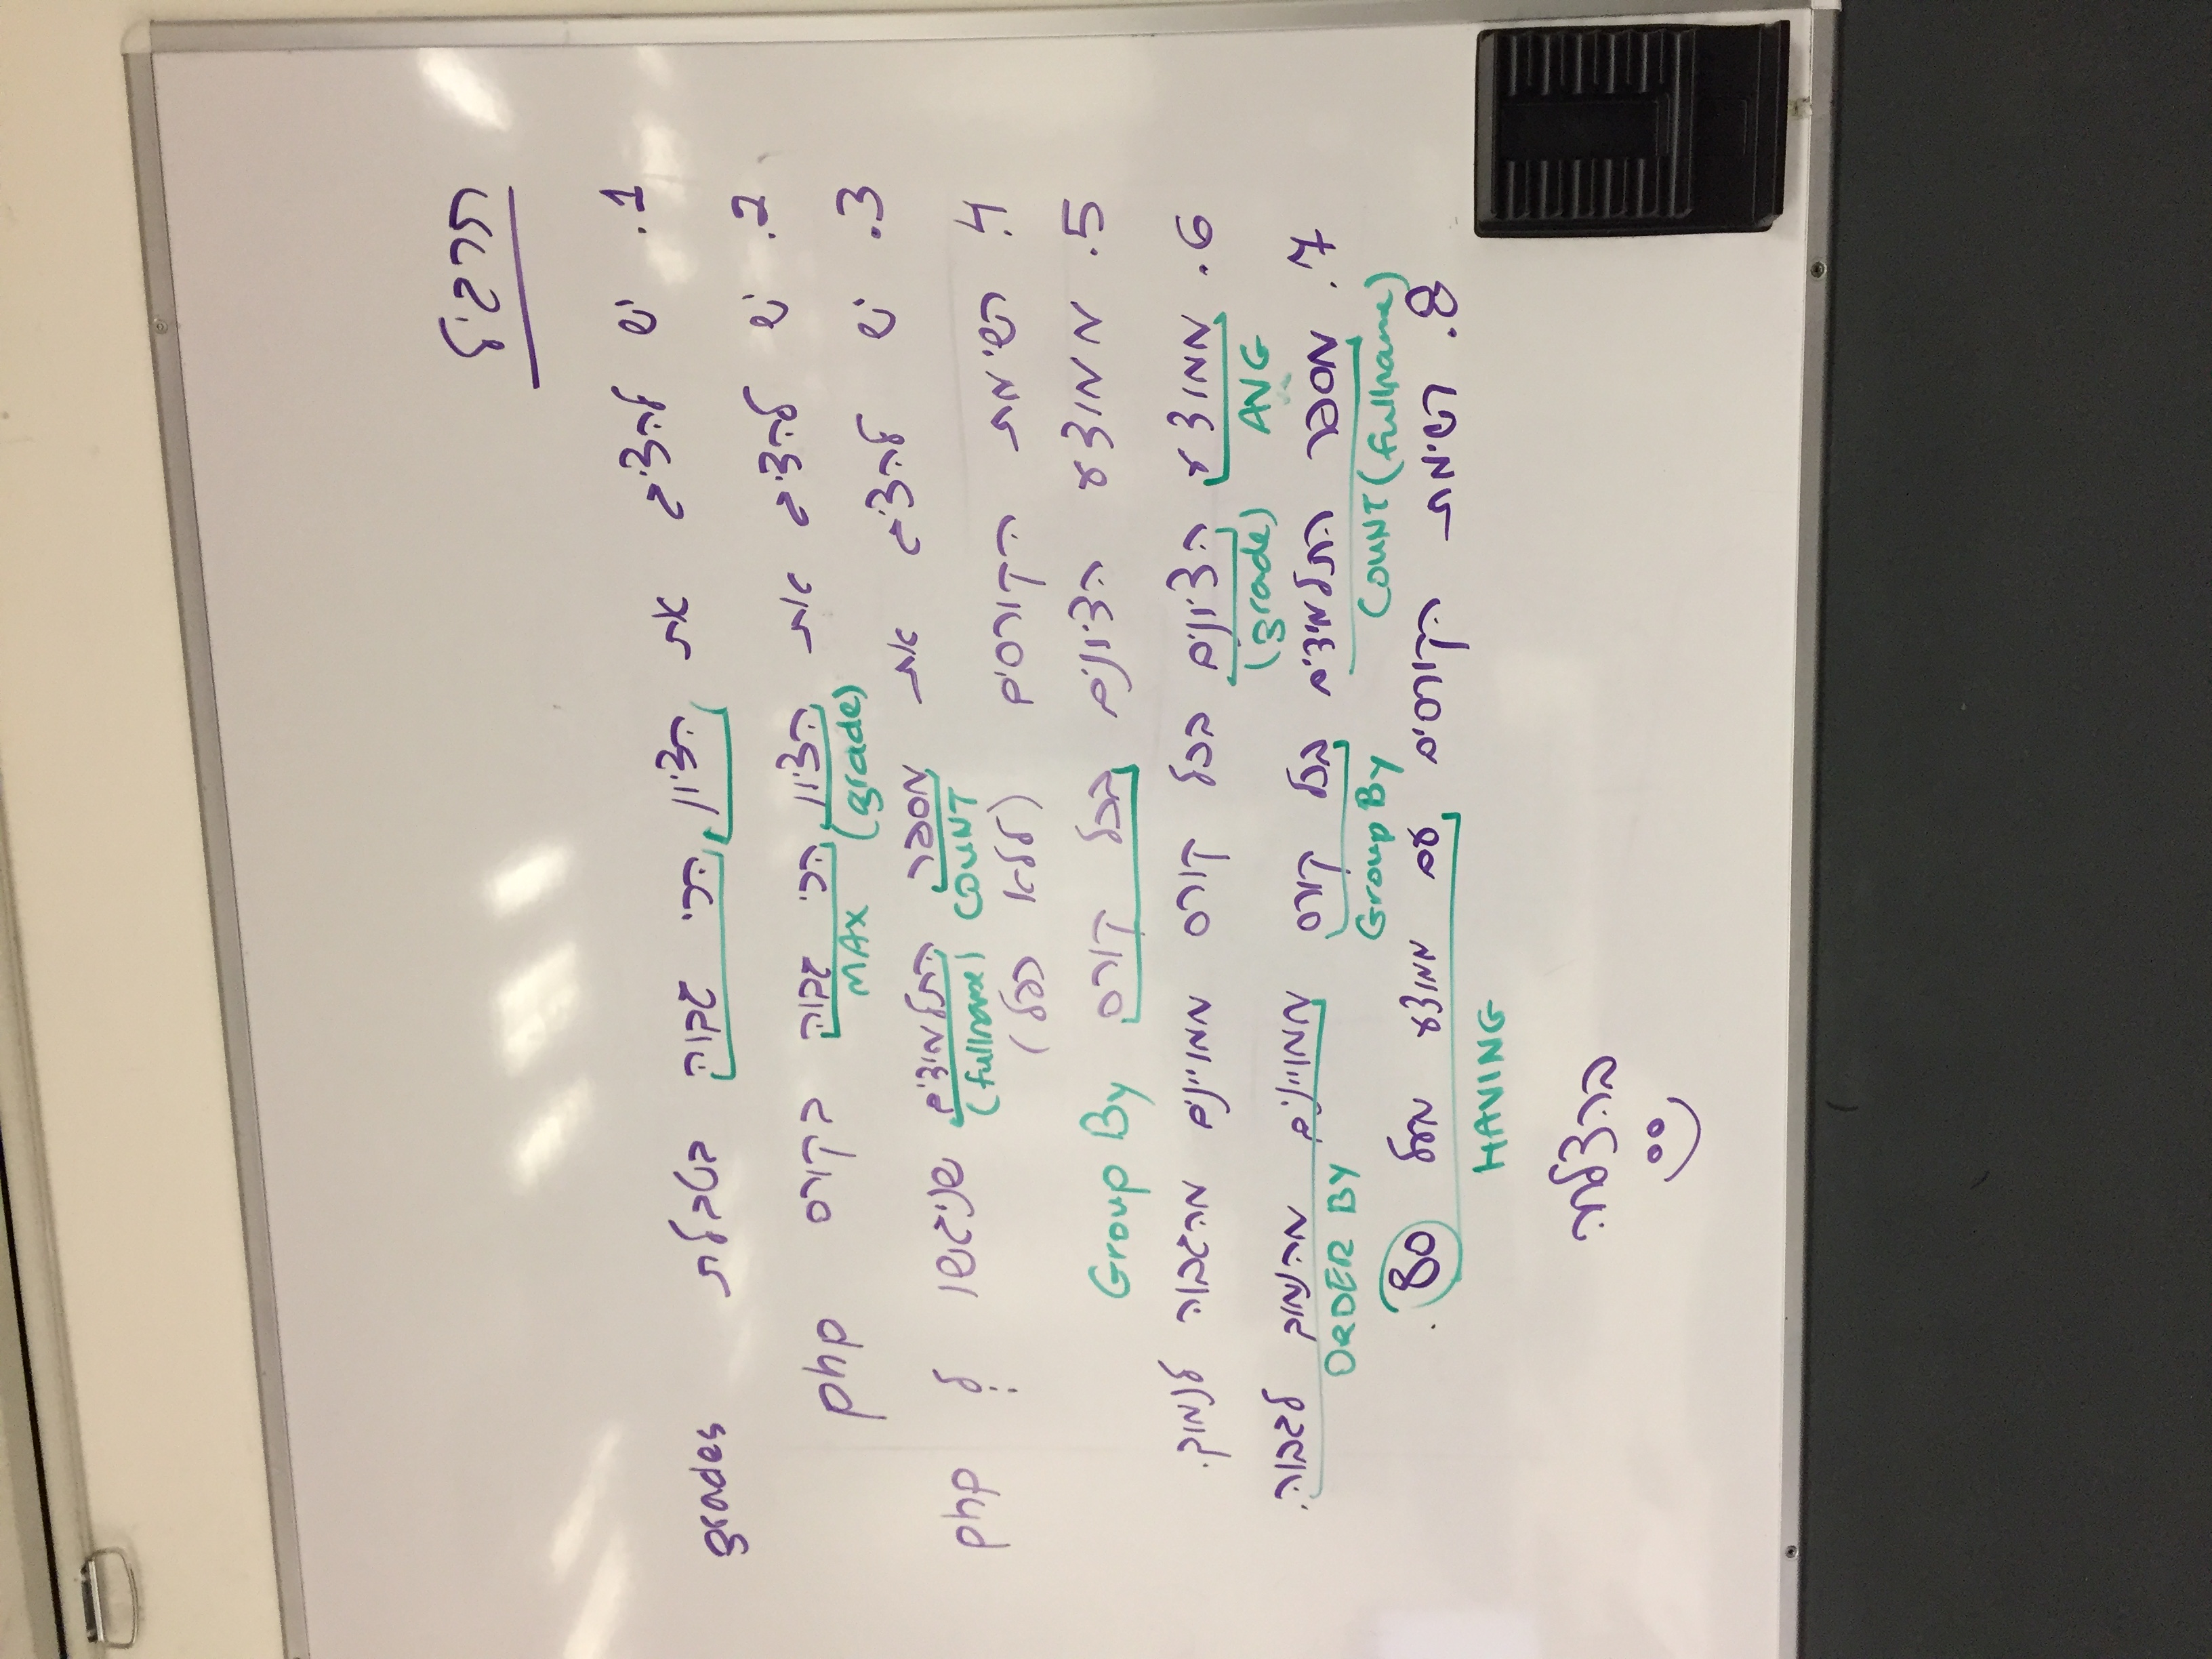 תרגיל
1. יש להציג את הציון הכי גבוה בטבלת grades
2. יש להציג את הציון הכי גבוה בקורס php
MAX (grade)
3. יש להציג את מספר התלמידים שניגשו ל php
(fullname) COUNT
4. רשימת הקורסים (ללא כפל)
5. ממוצע הציונים בכל קורס Group By
6. ממוצע הציונים בכל קורס ממויינים מהגבוה לנמוך.
(grade) AVG
7. מספר התלמידים בכל קורס ממויינים מהנמוך לגבוה.
ORDER BY Group By COUNT(fullname)
8. רשימת הקורסים עם ממוצע מעל 80.
HAVING
בהצלחה